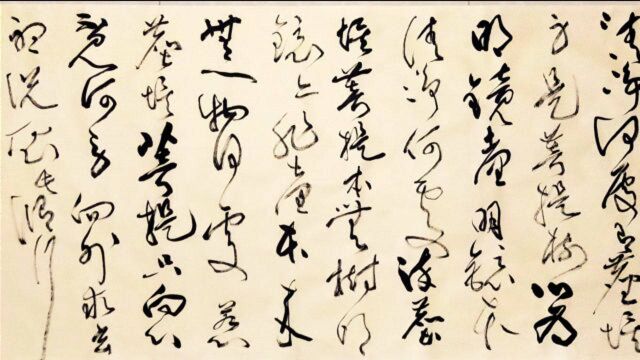 清淨何處有塵埃
身是菩提樹心為
明鏡臺明鏡本
清淨何處染塵
埃菩提本無樹明
鏡亦非臺本来
無一物何處惹
塵埃菩提只向心
覓何勞向外求玄
聽說依此修行